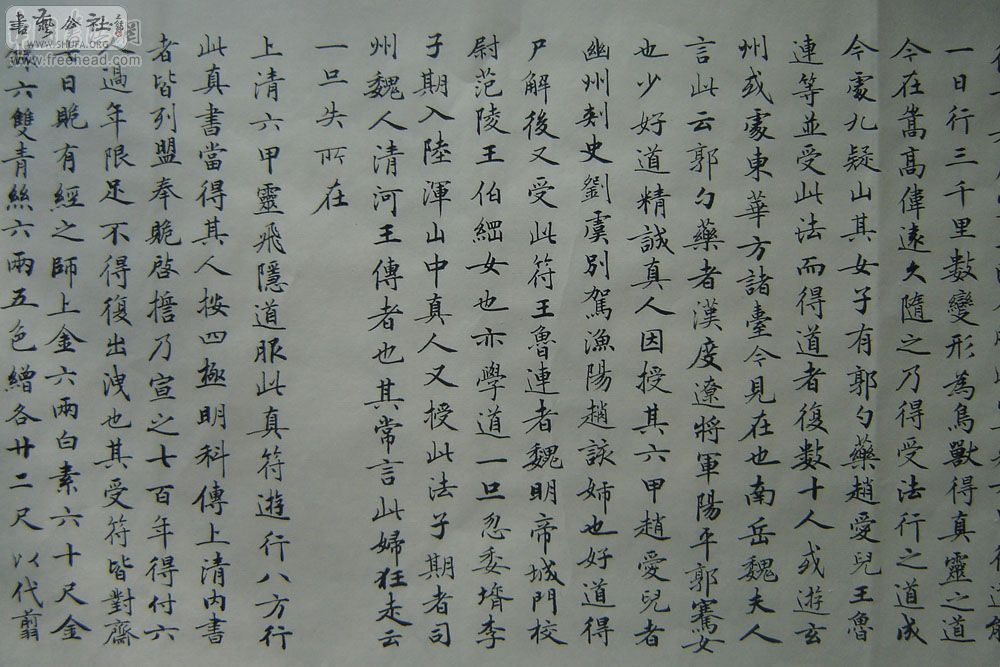 一日行三千里數變形為鳥獸得真靈之道
今在嵩高偉遠久隨之乃得受法行之道成
今處九疑山其女子有郭勺藥趙愛兒王魯
連等並受此法而得道者復數十人或遊玄
州或處東華方諸臺今見在也南岳魏夫人
言此云郭勺藥者漢度遼將軍陽平郭騫女
也少好道精誠真人因授其六甲趙愛兒者
幽州刺史劉虞別駕漁陽趙該姊也好道得
尸解後又受此符王魯連者魏明帝城門校
尉范陵王伯綱女也亦學道一旦忽委壻李
子期入陸渾山中真人又授此法子期者司
州魏人清河王傳者也其常言此婦狂走云
一旦失所在
上清六甲靈飛隱道服此真符遊行八方行
此真書當得其人按四極明科傳上清內書
者皆列盟奉贶啓擔乃宣之七百年得付六
過年限足不得復出洩也其受符皆對齋
七日贶有經之師上金六兩白素六十尺金
六雙青絲六兩五色繒各廿二尺以代翦
書藝公社
WWW.SHUFA.ORG